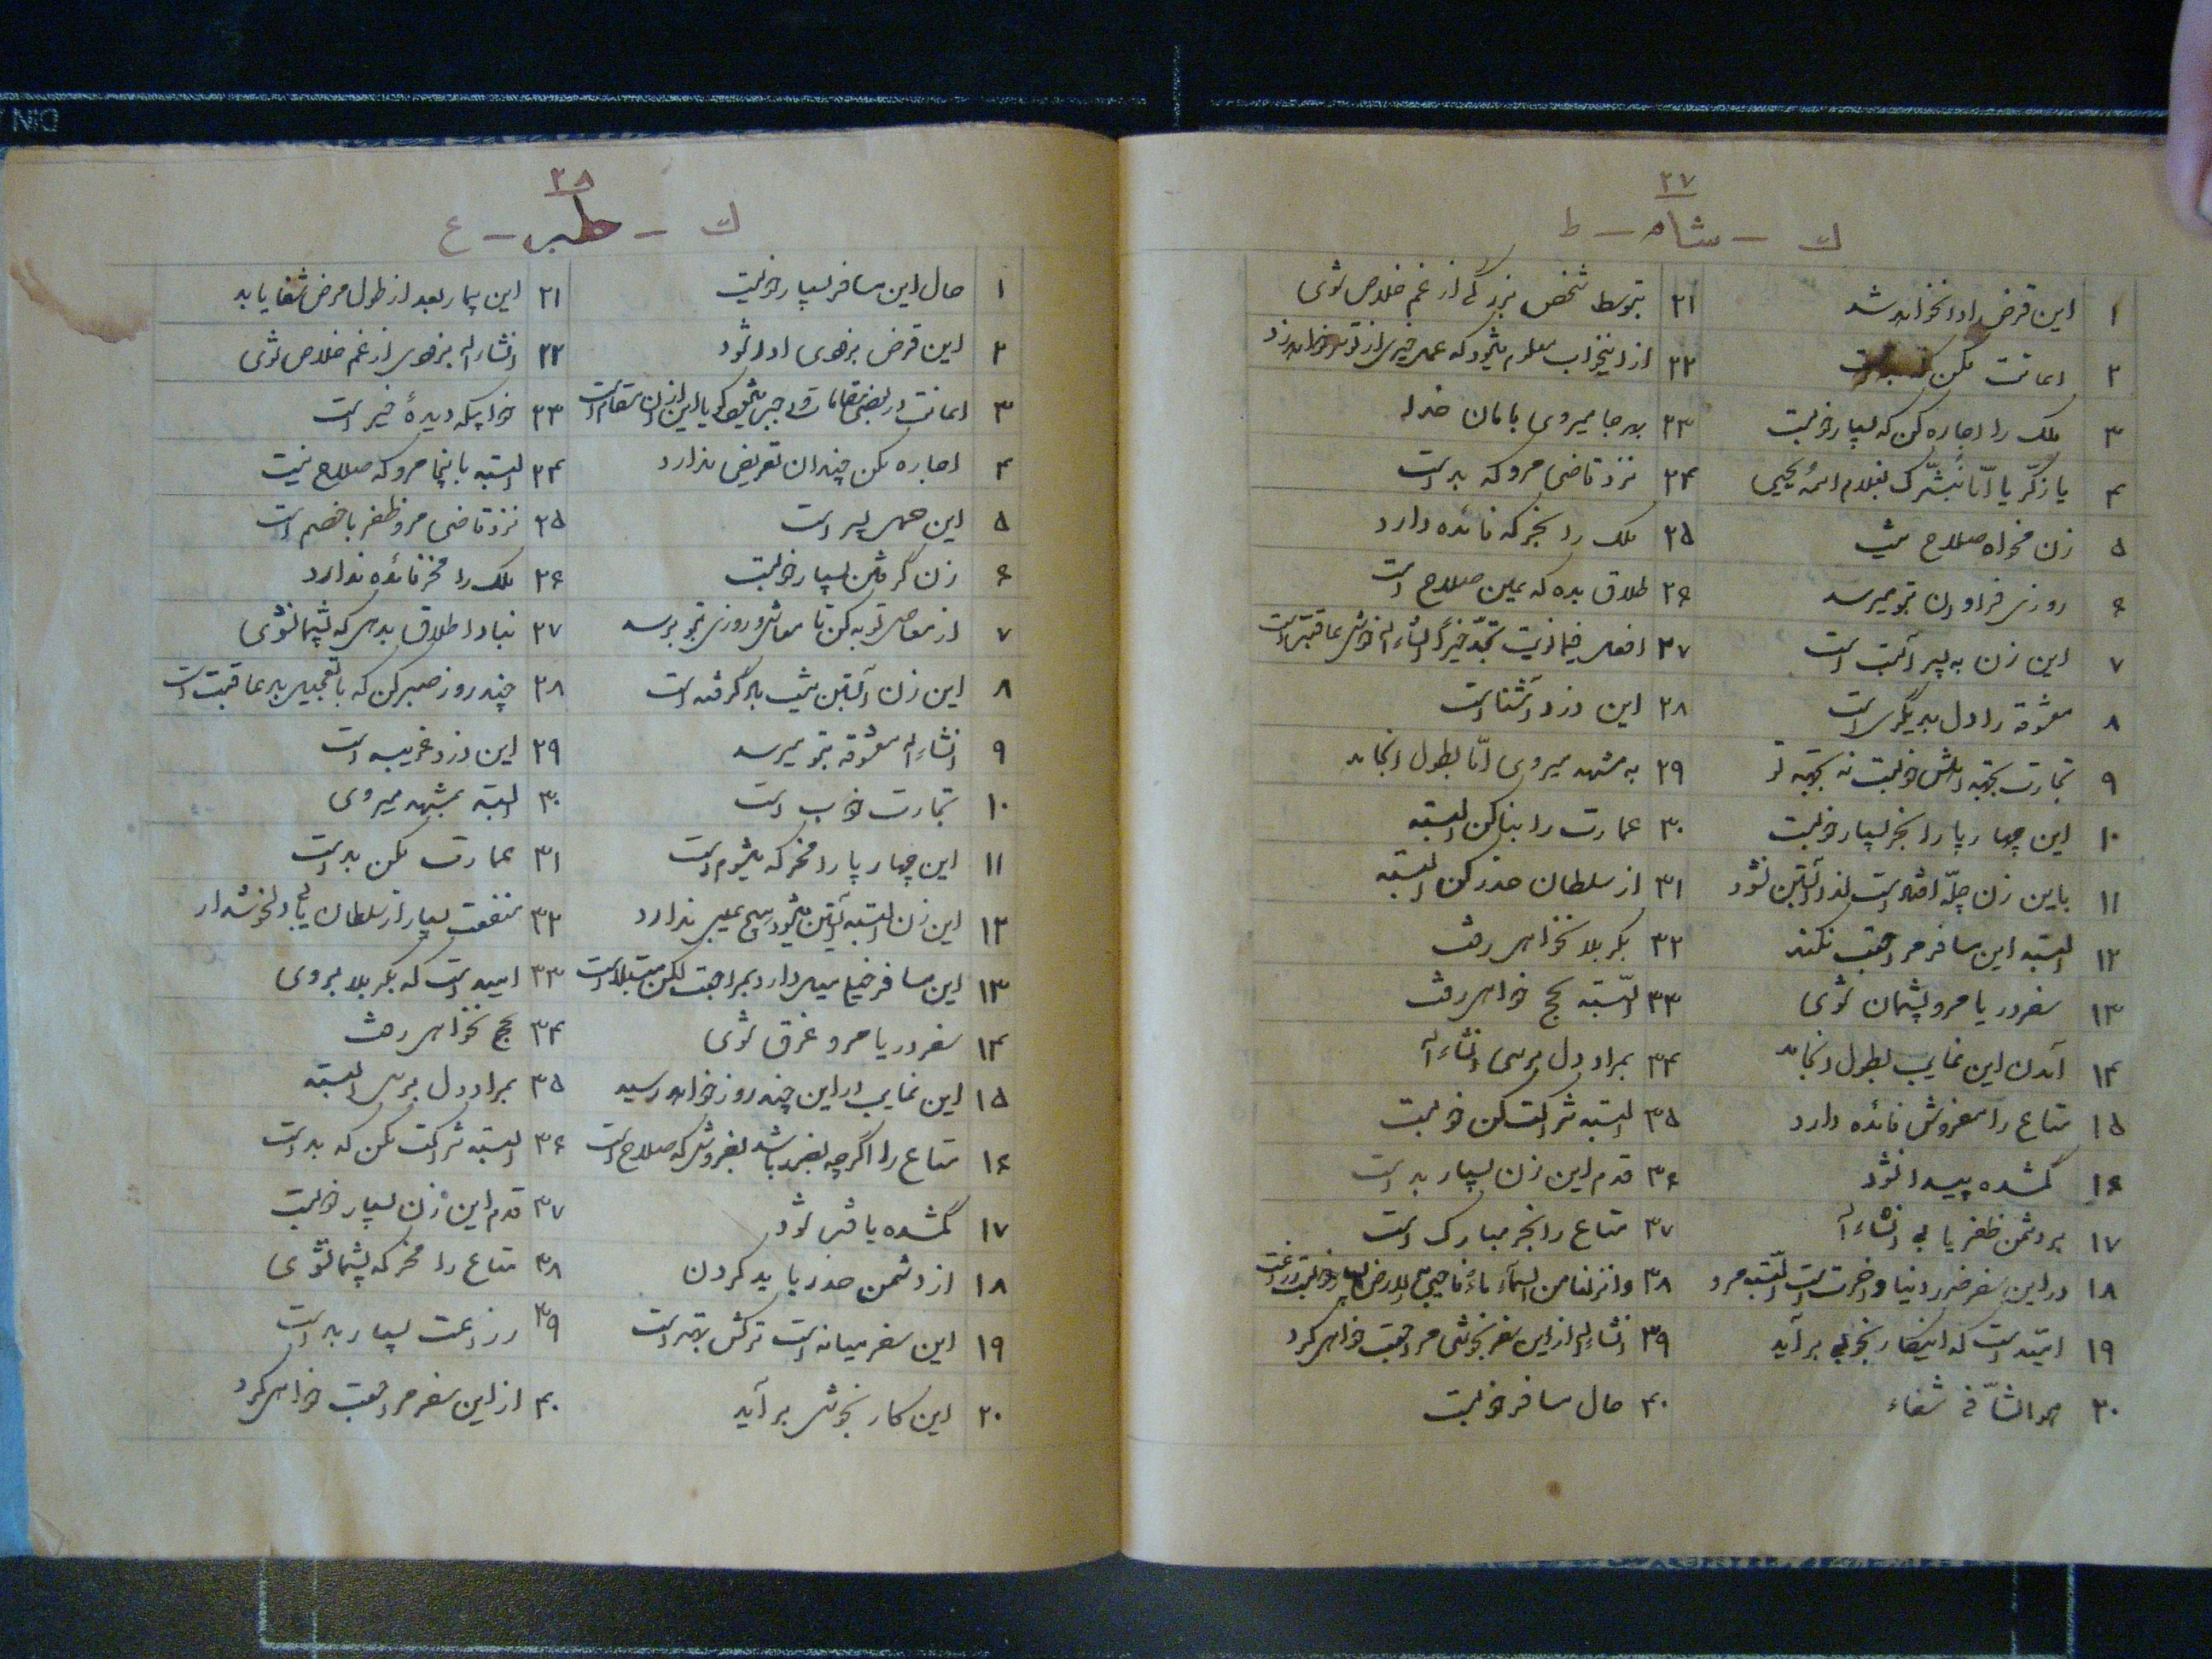 ۲۷
ک - شاه - ط
۱ این قرض ادا نخواهد شد
۲ اعانت مکن که
۳ ملک را اجاره کن که بسیار خوبست
۴ یا زکّریا انّا نبشّرک بغلام اسمهُ یحیی
۵ زن مخواه صلاح نیست
۶ روزی فراوان بتو میرسد
۷ این زن به پسر آبستن است
۸ معشوقه را دل بدیگری است
۹ تجارت بجهة اهلش خوبست نه بجهة تو
۱۰ این چهارپا را بخر بسیار خوبست
۱۱ باین زن چلّه افتاده است لذا آبستن نشود
۱۲ البته این مسافر مراجعت نکند
۱۳ سفر دریا مرو پشیمان شوی
۱۴ آمدن این غایب بطول انجامد
۱۵ متاع را مفروش فائده دارد
۱۶ گمشده پیدا نشود
۱۷ بر دشمن ظفر یابی انشاءاله
۱۸ در این سفر ضرر دنیا و آخرت است البته مرو
۱۹ امید است که اینکار بخوبی برآید
۲۰ هو الشّافی شفاء
۲۱ بتوسط شخص بزرگی از غم خلاص شوی
۲۲ از اینخواب معلوم میشود که عمل خیری از تو خواهد
۲۳ بهر جا میروی بامان خدا
۲۴ نزد قاضی مرو که بد است
۲۵ ملک را بخر که فائده دارد
۲۶ طلاق بده که همین صلاح است
۲۷ افعل فیما نویت تجد خیرا انشاءاله خوش عاقبت است
۲۸ این دزد آشنا است
۲۹ به مشهد میروی امّا بطول انجامد
۳۰ عمارت را بنا کن البته
۳۱ از سلطان حذر کن البته
۳۲ بکربلا نخواهی رفت
۳۳ البّته بحج خواهی رفت
۳۴ بمراد دل برسی انشاءاله
۳۵ البته شراکت کن خوبست
۳۶ قدم این زن بسیار بد است
۳۷ متاع را بخر مبارک است
۳۸ و انزلنا من السّمآء ماءً فاحیی به الارض
۳۹ انشاءاله از این سفر بخوشی مراجعت خواهی کرد
۴۰ حال مسافر خوبست
۲۸
ک - طبر - ع
۱ حال این مسافر بسیار خوبست
۲ این قرض بزودی ادا شود
۳ اعانت در بعضی مقامات
۴ اجاره مکن چندان تعریفی ندارد
۵ این حمل پسر است
۶ زن گرفتن بسیار خوبست
۷ از معاصی توبه کن تا معاش و روزی بتو برسد
۸ این زن آبستن نیست باد گرفته است
۹ انشاءاله معشوقه بتو میرسد
۱۰ تجارت خوب است
۱۱ این چهارپا را مخر که میشوم است
۱۲ این زن البته آبستن میشود هیچ عیبی ندارد
۱۳ این مسافر خیلی میل دارد بمراجعت لکن مبتلا است
۱۴ سفر دریا مرو غرق شوی
۱۵ این غایب در این چند روز خواهد رسید
۱۶ متاع را اگرچه بضرر باشد بفروش که صلاح است
۱۷ گمشده یافت شود
۱۸ از دشمن حذر باید کردن
۱۹ این سفر میانه است ترکش بهتر است
۲۰ این کار بخوشی برآید
۲۱ این بیمار بعد از طول مرض شفا یابد
۲۲ انشاءاله بزودی از غم خلاص شوی
۲۳ خوابیکه دیدهٔ خیر است
۲۴ البته بانجا مرو که صلاح نیست
۲۵ نزد قاضی مرو ظفر با خصم است
۲۶ ملک را مخر فائده ندارد
۲۷ مبادا طلاق بدهی که پشیمان شوی
۲۸ چند روز صبر کن که با تعجیل بد عاقبت است
۲۹ این دزد غریب است
۳۰ البته بمشهد میروی
۳۱ عمارت مکن بد است
۳۲ منفعت بسیار از سلطان یابی دلخوشدار
۳۳ امید است که بکربلا بروی
۳۴ بحج نخواهی رفت
۳۵ بمراد دل برسی البته
۳۶ البته شراکت مکن که بد است
۳۷ قدم این زن بسیار خوبست
۳۸ متاع را مخر که پشیمان شوی
۳۹ زراعت بسیار بد است
۴۰ از این سفر مراجعت خواهی کرد